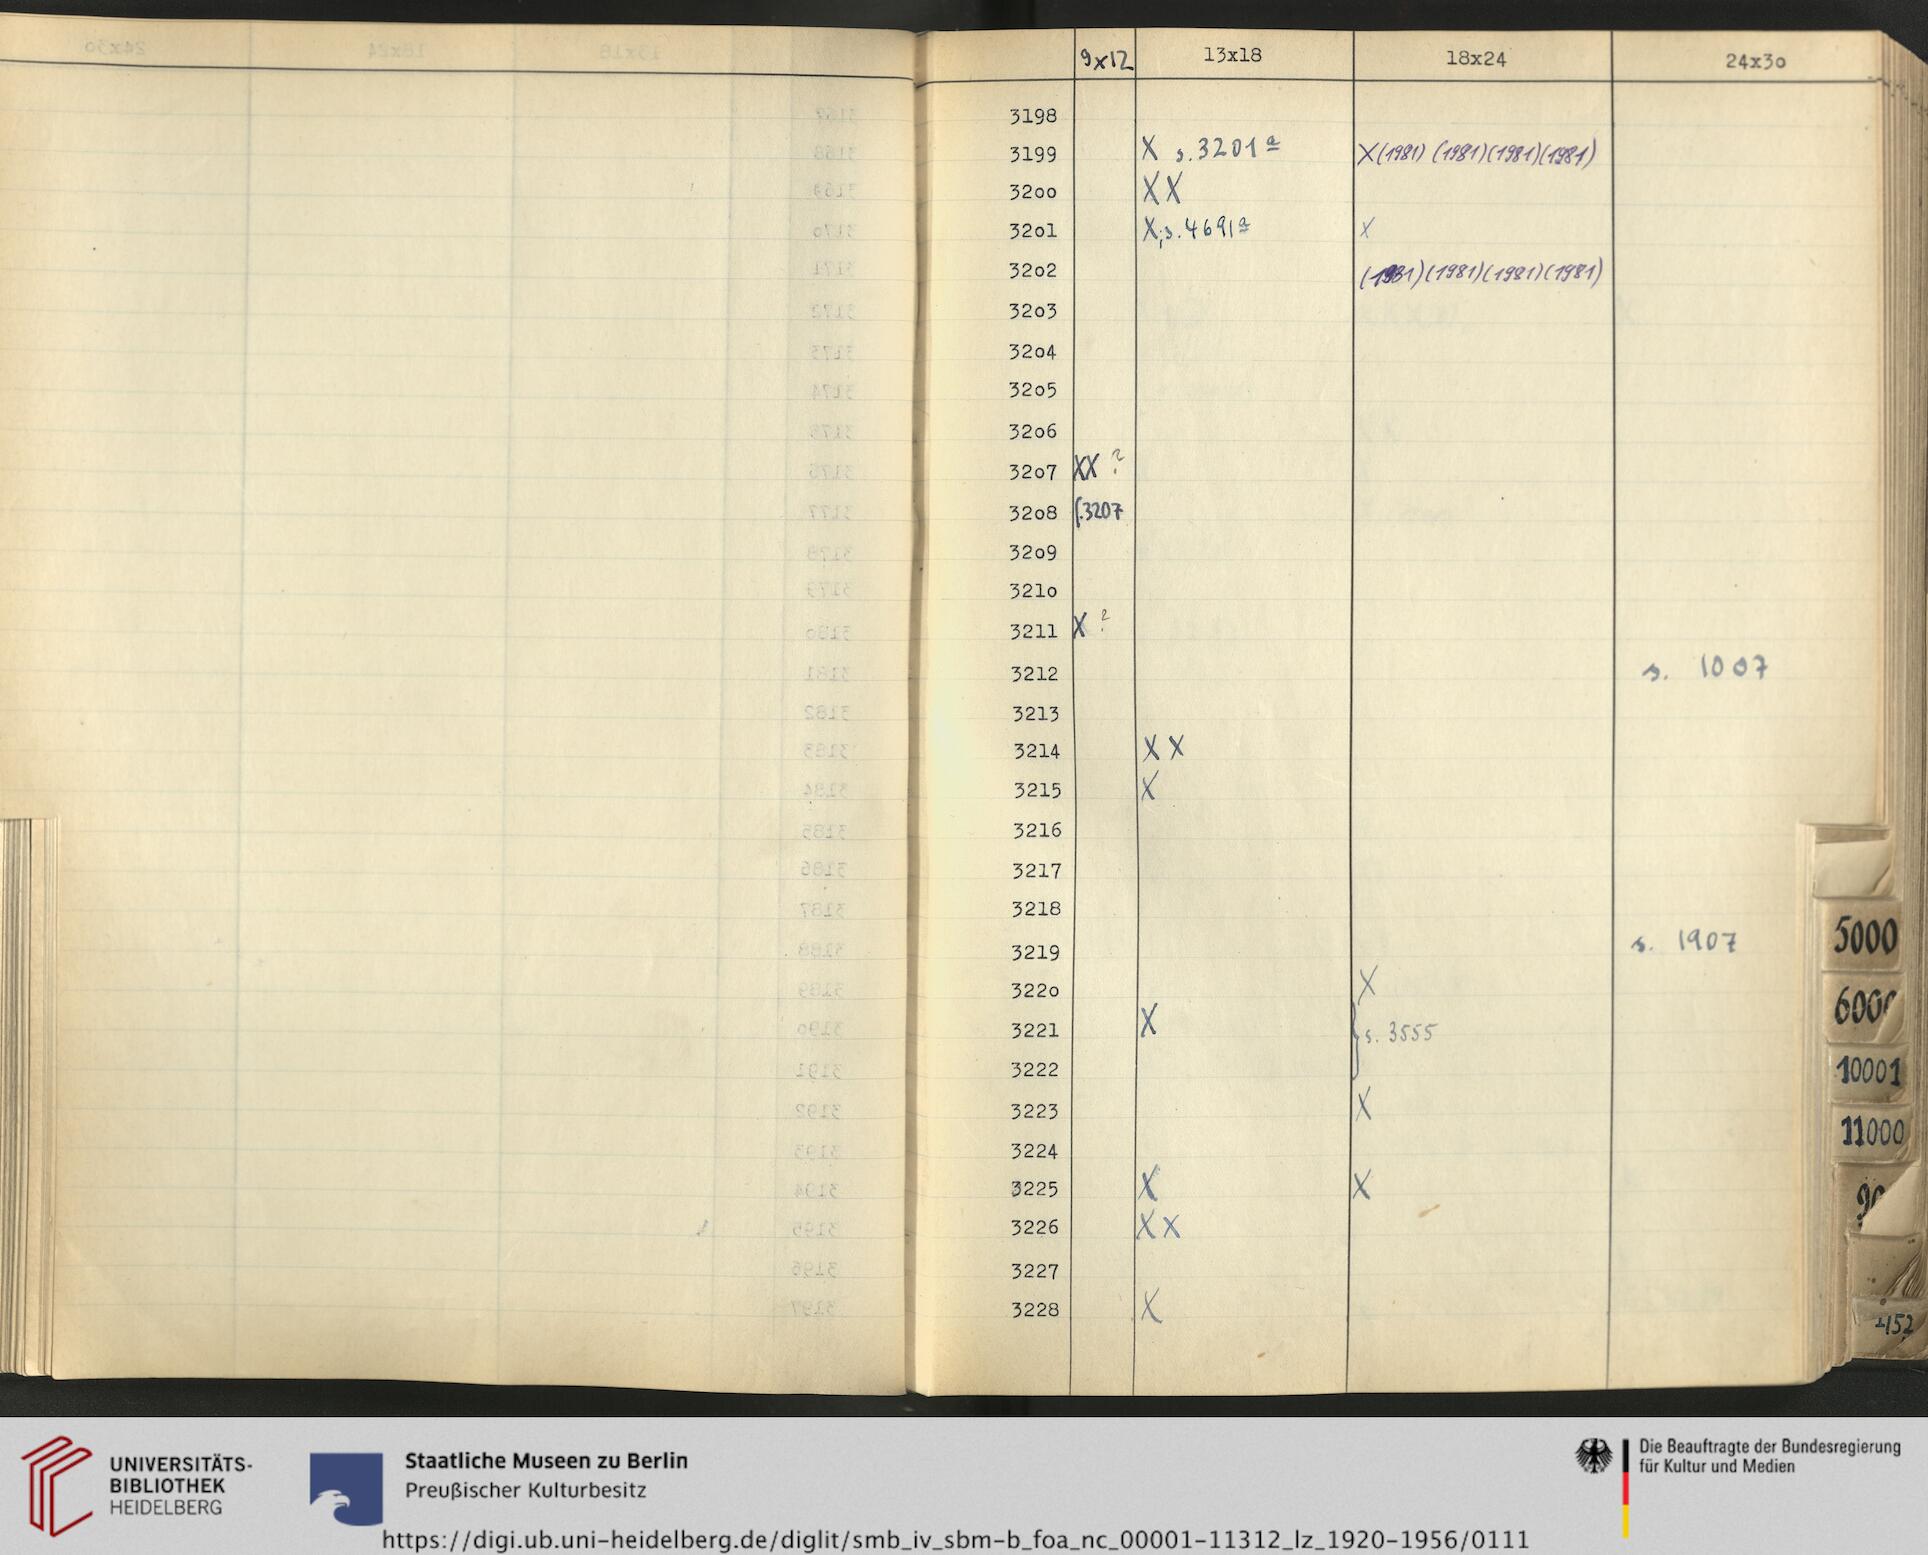 9x12 13x18 18x24 24x3o
3198
3199 X s. 3201a X (1981) (1981) (1981) (1981)
32oo XX
32o1 X; s. 4691a X
32o2 (1981) (1981) (1981) (1981)
32o3
32o4
32o5
32o6
32o7 XX ?
32o8 s. 3207
32o9
321o
3211 X ?
3212 s. 1007
3213
3214 X X
3215 X
3216
3217
3218
3219 s. 1907
322o X
3221 X s. 3555
3222
3223 X
3224
3225 X X
3226 X X
3227
3228 X
5000
6000
10001
11000
UNIVERSITÄTS-
BIBLIOTHEK
HEIDELBERG
Staatliche Museen zu Berlin
Preußischer Kulturbesitz
Die Beauftragte der Bundesregierung
für Kultur und Medien
https://digi.ub.uni-heidelberg.de/diglit/smb_iv_sbm-b_foa_nc_00001-11312_lz_1920-1956/0111